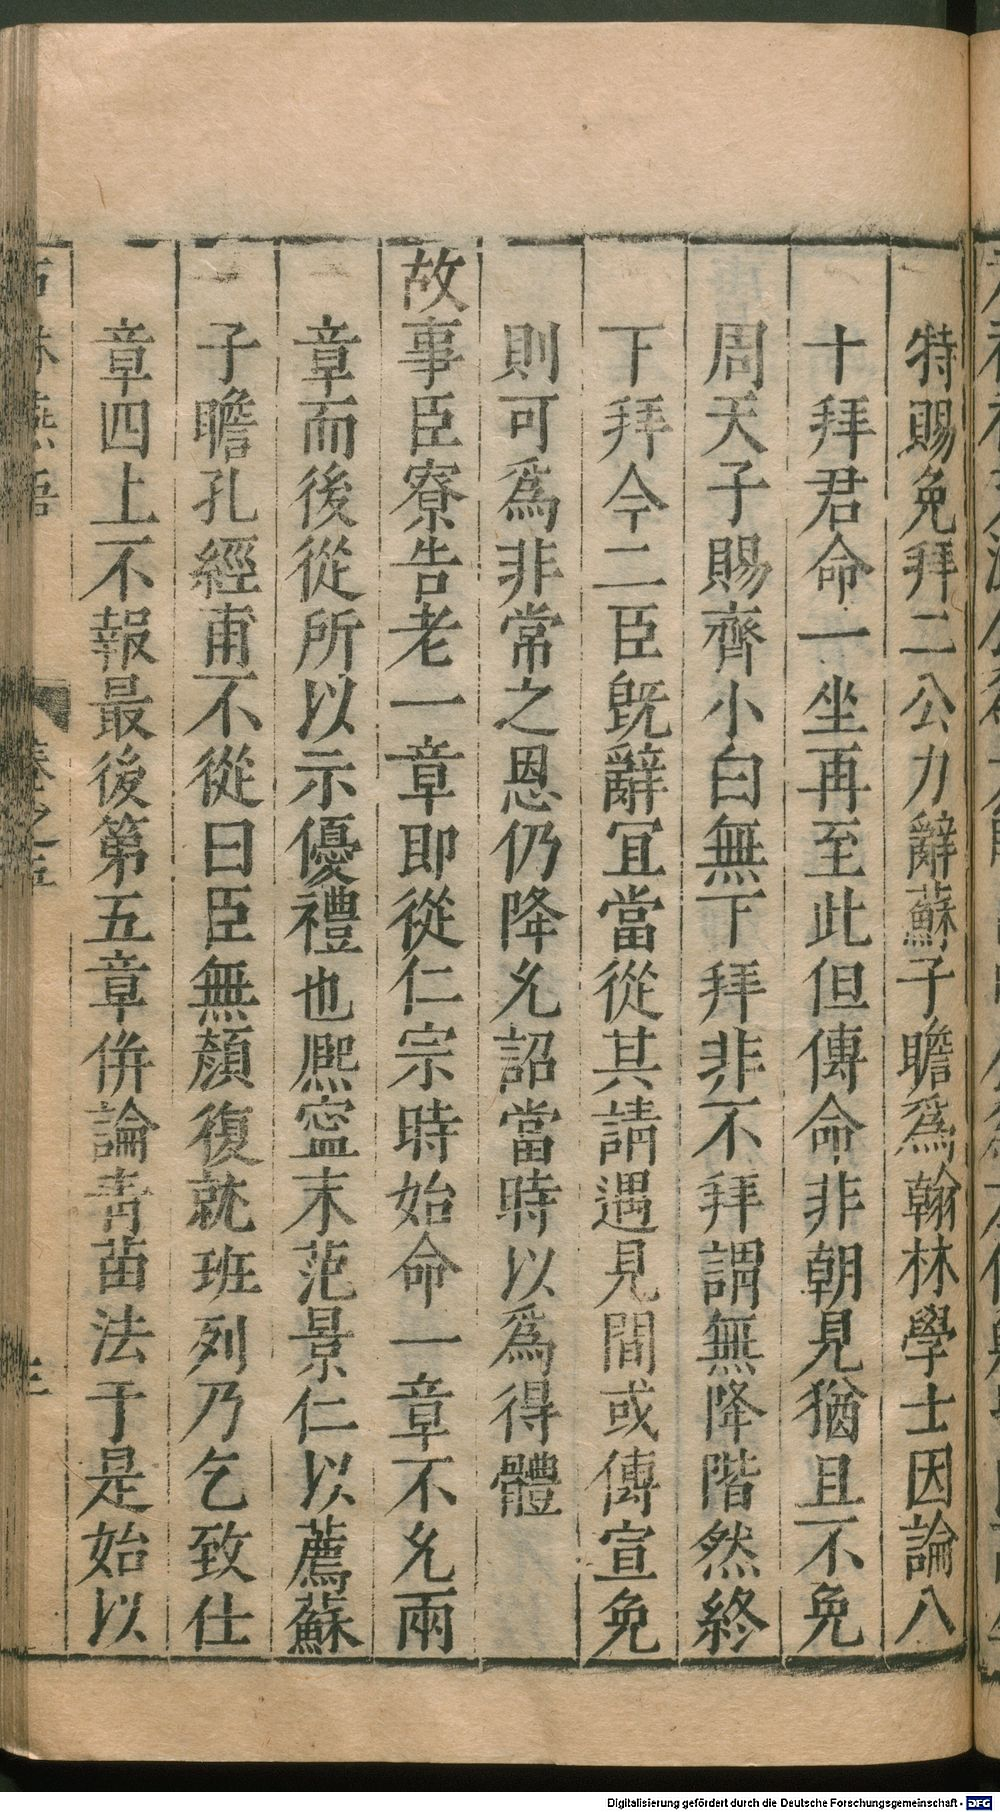 特賜免拜二公力辭蘇子瞻爲翰林學士因論八
十拜君命一坐再至此但傳命非朝見猶且不免
周天子賜齊小白無下拜非不拜謂無降階然終
下拜今二臣旣辭宜當從其請遇見間或傳宣免
則可爲非常之恩仍降允詔當時以爲得體
故事臣寮告老一章即從仁宗時始命一章不允兩
章而後從所以示優禮也熈寧末范景仁以薦蘇
子瞻孔經甫不從曰臣無顏復就班列乃乞致仕
章四上不報最後第五章併論青苗法于是始以
Digitalisierung gefördert durch die Deutsche Forschungsgemeinschaft - DFG